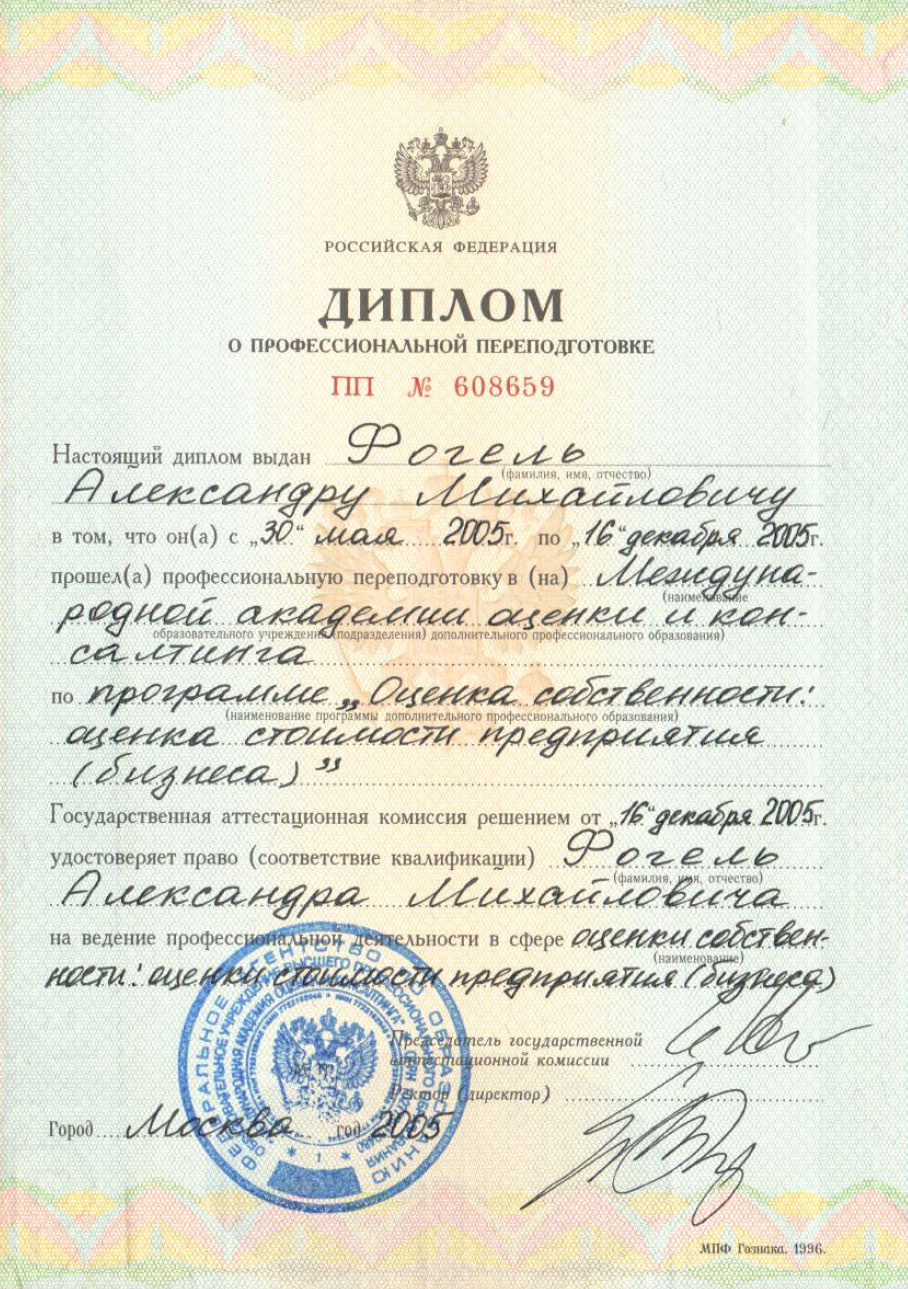 РОССИЙСКАЯ ФЕДЕРАЦИЯ
ДИПЛОМ
О ПРОФЕССИОНАЛЬНОЙ ПЕРЕПОДГОТОВКЕ
ПП № 608659
Настоящий диплом выдан Фогель
(фамилия, имя, отчество)
Александру Михайловичу
в том, что он(а) с „30“ мая 2005г. по „16“ декабря 2005г.
прошел(а) профессиональную переподготовку в (на) Междуна-
(наименование
родной академии оценки и кон-
образовательного учреждения (подразделения) дополнительного профессионального образования)
салтинга
по программе „Оценка собственности:
(наименование программы дополнительного профессионального образования)
оценка стоимости предприятия
(бизнеса)”
Государственная аттестационная комиссия решением от „16“ декабря 2005г.
удостоверяет право (соответствие квалификации) Фогель
(фамилия, имя, отчество)
Александра Михайловича
на ведение профессиональной деятельности в сфере оценки собствен-
(наименование)
ности: оценки стоимости предприятия (бизнеса)
Председатель государственной
аттестационной комиссии
Ректор (директор)
Город Москва год 2005
ФЕДЕРАЛЬНОЕ АГЕНТСТВО ПО ОБРАЗОВАНИЮ
* 1 *
МПФ Гознака. 1996.